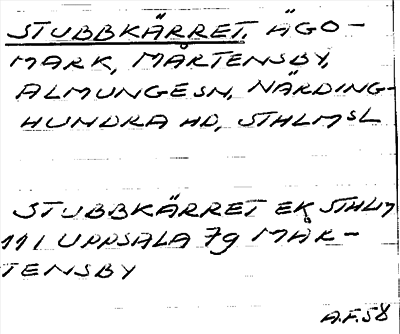 STUBBKÄRRET, ÄGO-
MARK, MÅRTENSBY,
ALMUNGE SN, NÄRDING-
HUNDRA HD, STHLMSL
STUBBKÄRRET EK STHLM
111 UPPSALA 7g MÅR-
TENSBY
A.F.58